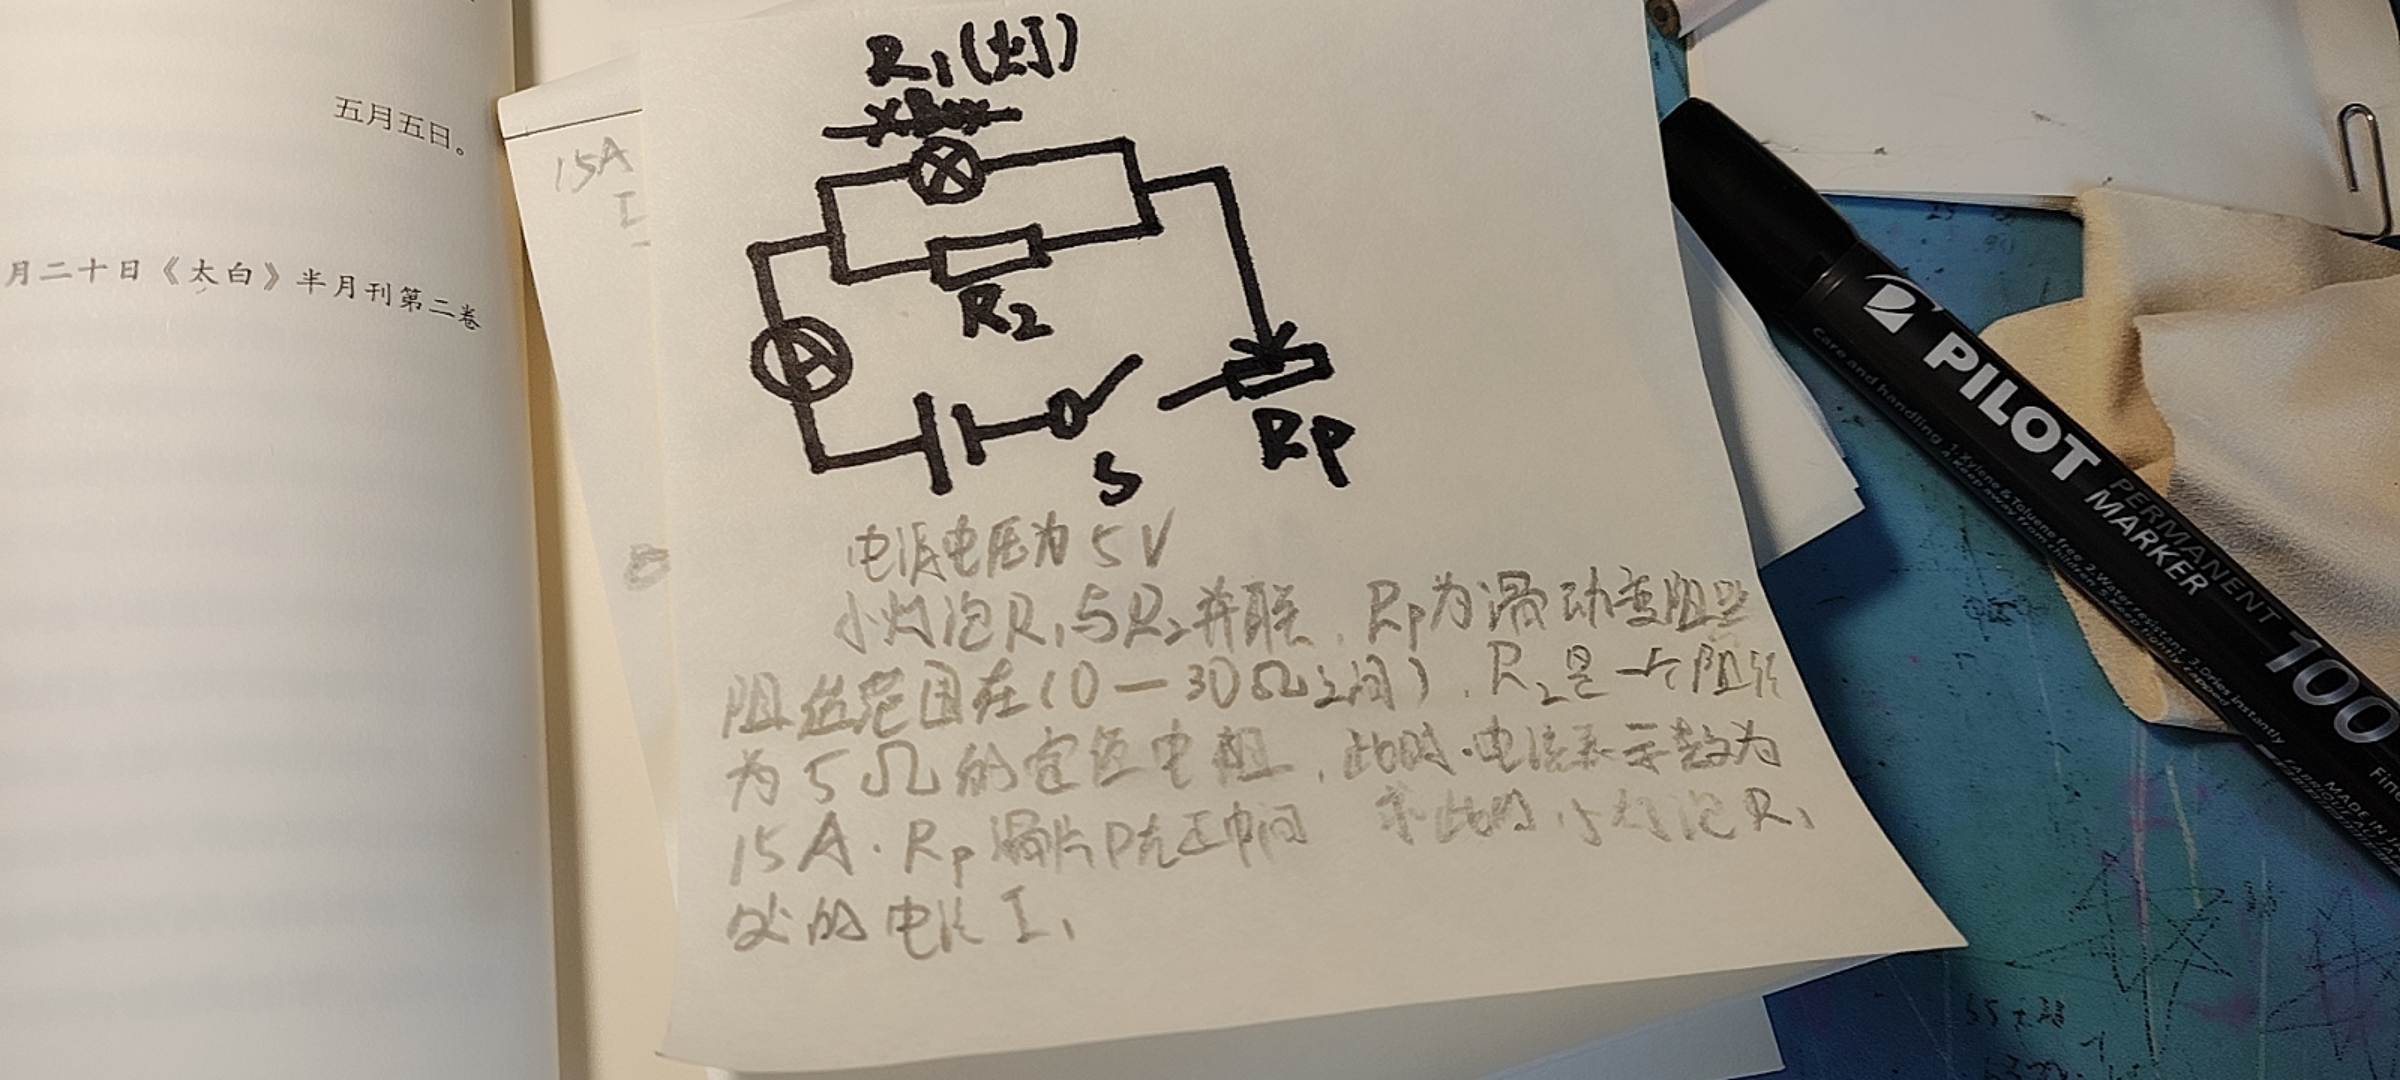 五月五日。
月二十日《太白》半月刊第二卷
15A
R₁(灯)
R₂
A
S
Rp
电源电压为5V
小灯泡R₁与R₂并联，Rp为滑动变阻器
阻值范围在(10—30Ω之间)，R₂是一个阻值
为5Ω的定值电阻，此时·电流表示数为
15A·Rp滑片P在正中间 求此时小灯泡R₁
处的电流I₁
PILOT
PERMANENT
MARKER
100
care and handling
1.Xylene & Toluene free. 2.Water resistant. 3.Dries instantly
4.Keep away from children.